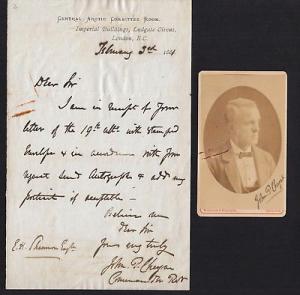 GENERAL ARCTIC COMMITTEE ROOM.
Imperial Buildings, Ludgate Circus,
London, E.C.
February 3rd
Dear Sir
I am in receipt of your
letter of the 19th ult. with stamped
Envelope & in accordance with your
request send Autographs & add my
portrait if acceptable -
Believe me
Dear Sir
Yours very truly
John P. Cheyne
Commander R.N.
E. H. Esqre
John P. Cheyne